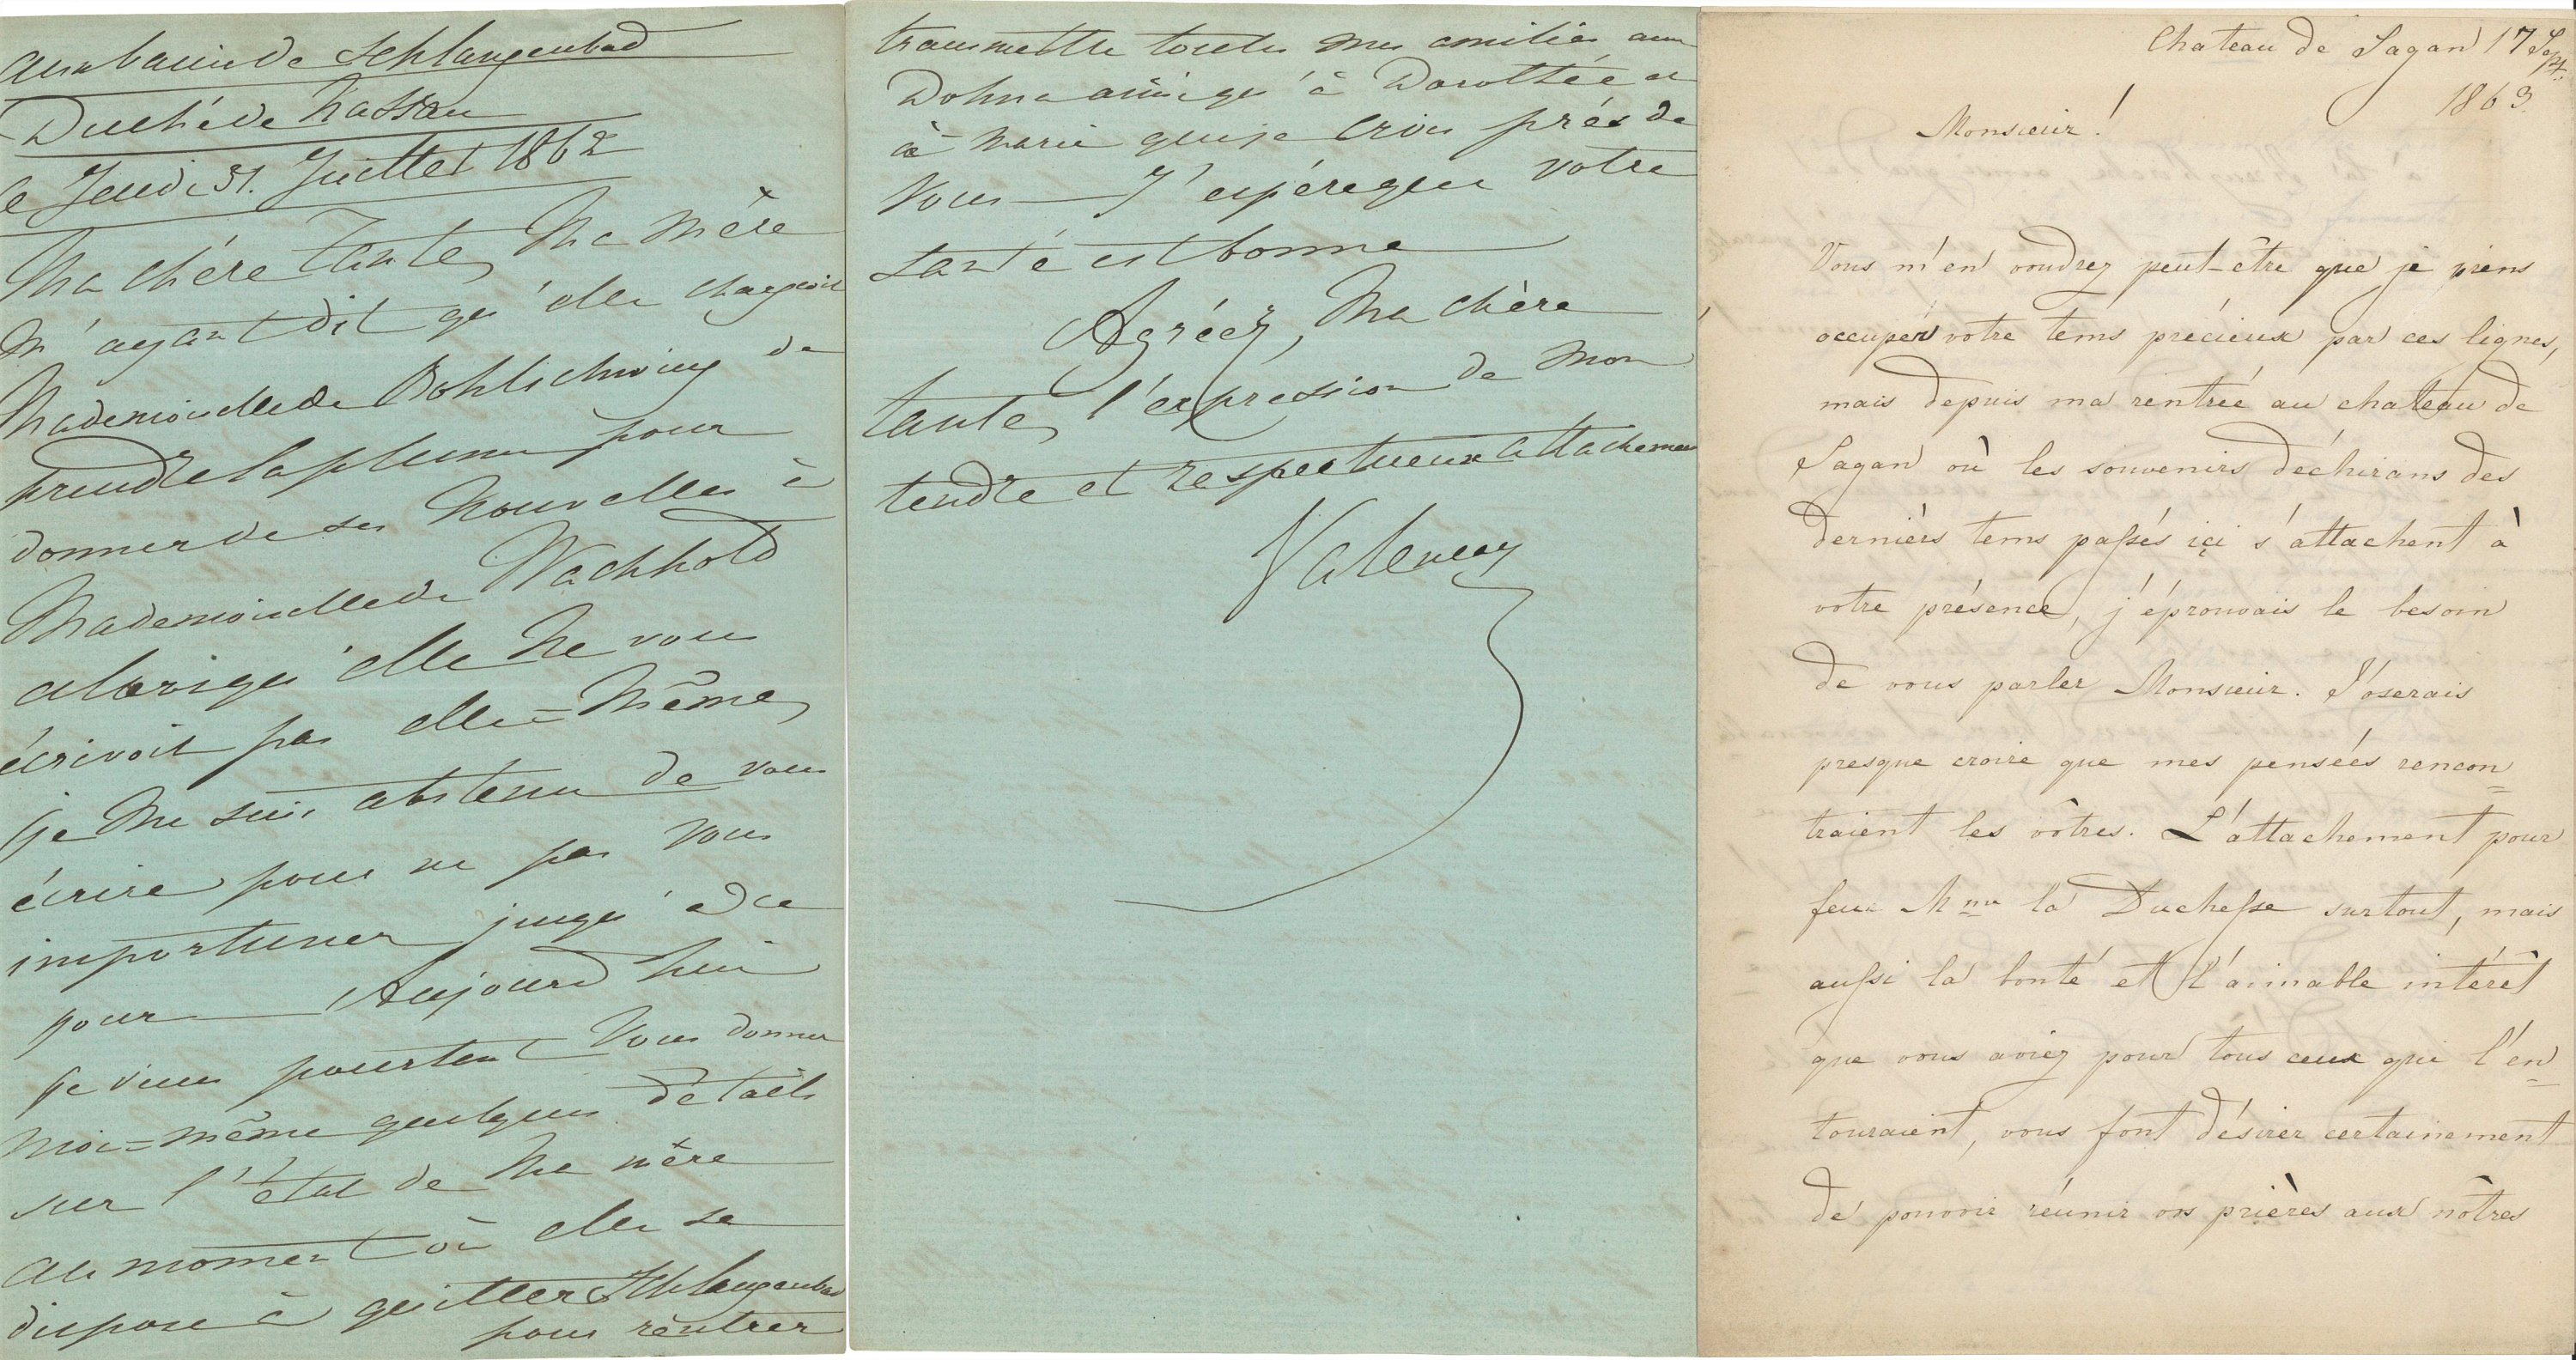 aux bains de Schlangenbad
Duché de Nassau
le Jeudi 31. Juillet 1862
Ma chère Tante, Ma Mère
m'ayant dit qu'elle chargeoit
Mademoiselle de Bohlschwing de
prendre la plume pour
donner de ses nouvelles à
Mademoiselle de Wachhold
alors qu'elle ne vous
écrivoit pas elle=même,
je me suis abstenu de vous
écrire pour ne pas vous
importuner jusqu'à ce
jour — Aujourd'hui
je viens pourtant vous donner
moi=même quelques détails
sur l'état de ma mère
au moment où elle se
dispose à quitter Schlangenbad
pour rentrer
transmettre toutes mes amitiés aux
Dohna ainsi qu'à Dorothée et
à Marie que je crois près de
vous — J'espère que votre
santé est bonne
Agréez, Ma chère
tante, l'expression de mon
tendre et respectueux attachement
Valençay
Chateau de Sagan 17 Sept.
1863.
Monsieur!
Vous m'en voudrez peut-être que je viens
occuper votre tems précieux par ces lignes,
mais depuis ma rentrée au chateau de
Sagan où les souvenirs déchirans des
derniers tems passés içi s'attachent à
votre présence, j'éprouvais le besoin
de vous parler Monsieur. J'oserais
presque croire que mes pensées rencon=
traient les vôtres. L'attachement pour
feue Mme la Duchesse surtout, mais
aussi la bonté et l'aimable intérêt
que vous aviez pour tous ceux qui l'en=
touraient, vous font désirer certainement
de pouvoir réunir vos prières aux nôtres